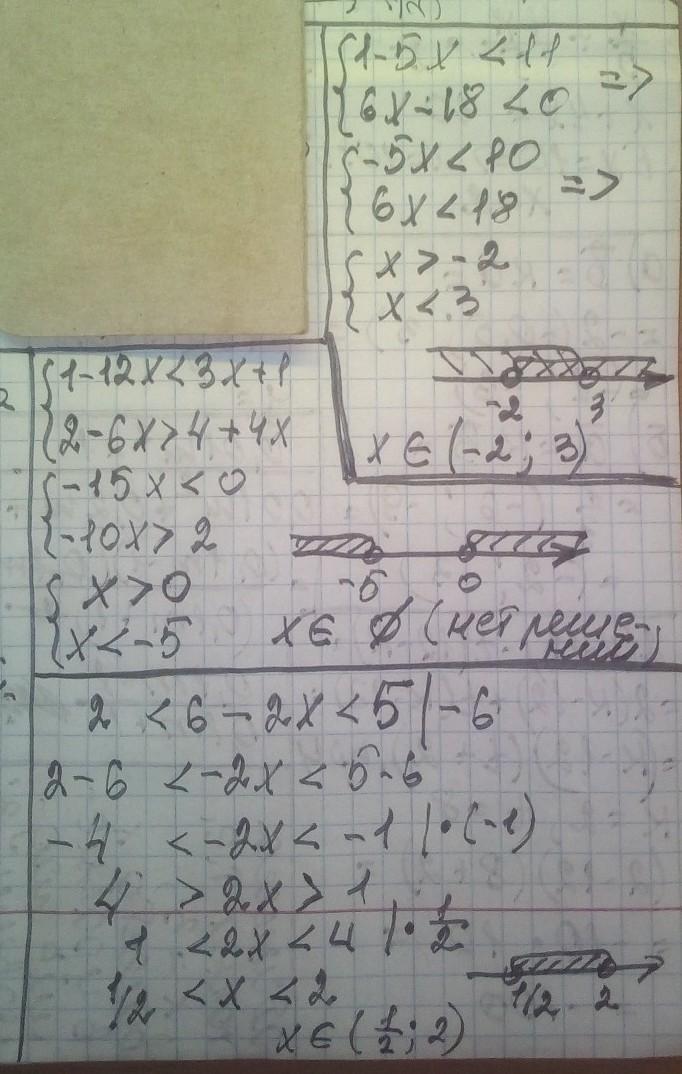 {1-5x<11
{6x-18<0 =>
{-5x<10
{6x<18 =>
{x>-2
{x<3
-2 3
x∈(-2; 3)
{1-12x<3x+1
{2-6x>4+4x
{-15x<0
{-10x>2
{x>0
{x<-5
-5 0
x∈ Ø (нет реше-
ний)
2 <6-2x<5 |-6
2-6 <-2x<5-6
-4 <-2x<-1 |·(-1)
4 >2x>1
1 <2x<4 |·1/2
1/2 <x<2
1/2 2
x∈(1/2; 2)